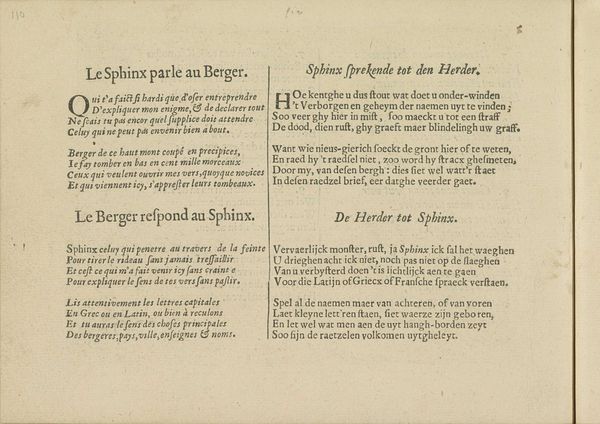 Le Sphinx parle au Berger.
Qui t'a faict si hardi que d'oser entreprendre
D'expliquer mon enigme, & de declarer tout
Ne scais tu pas encor quel supplice dois attendre
Celuy qui ne peut pas envenir bien a bout.
Berger de ce haut mont coupé en precipices,
Ie fay tomber en bas en cent mille morceaux
Ceux qui veulent ouvrir mes vers, quoyque novices
Et qui viennent icy, s'apprester leurs tombeaux.
Le Berger respond au Sphinx.
Sphinx celuy qui penetre au travers de la feinte
Pour tirer le rideau sans jamais tressaillir
Et cest ce qui m'a fait venir icy sans crainte
Pour expliquer le sens de tes vers sans paslir.
Lis attentivement les lettres capitales
En Grec ou en Latin, ou bien à reculons
Et tu auras le sens des choses principales
Des bergeres, pays, ville, enseignes & noms.
Sphinx sprekende tot den Herder.
HOe kentghe u dus stout wat doet u onder-winden
't Verborgen en geheym der naemen uyt te vinden;
Soo veer ghy hier in mist, soo maeckt u tot een straff
De dood, dien rust, ghy graeft maer blindelingh uw graff.
Want wie nieus-gierich soeckt de gront hier of te weten,
En raed hy 't raedsel niet, zoo word hy stracx ghesmeten,
Door my, van desen bergh: dies siet wel watt'r staet
In desen raedzel brief, eer datghe veerder gaet.
De Herder tot Sphinx.
Vervaerlijck monster, rust, ja Sphinx ick sal het waeghen
U drieghen acht ick niet, noch pas niet op de slaeghen
Van u verbysterd doen 't is lichtlijck aen te gaen
Voor die Latijn of Griecx of Fransche spraeck verstaen.
Spel al de naemen maer van achteren, of van voren
Laet kleyne lett'ren staen, siet waerze zijn geboren,
En let wel wat men aen de uyt hangh-borden zeyt
Soo sijn de raetzelen volkomen uytgheleyt.